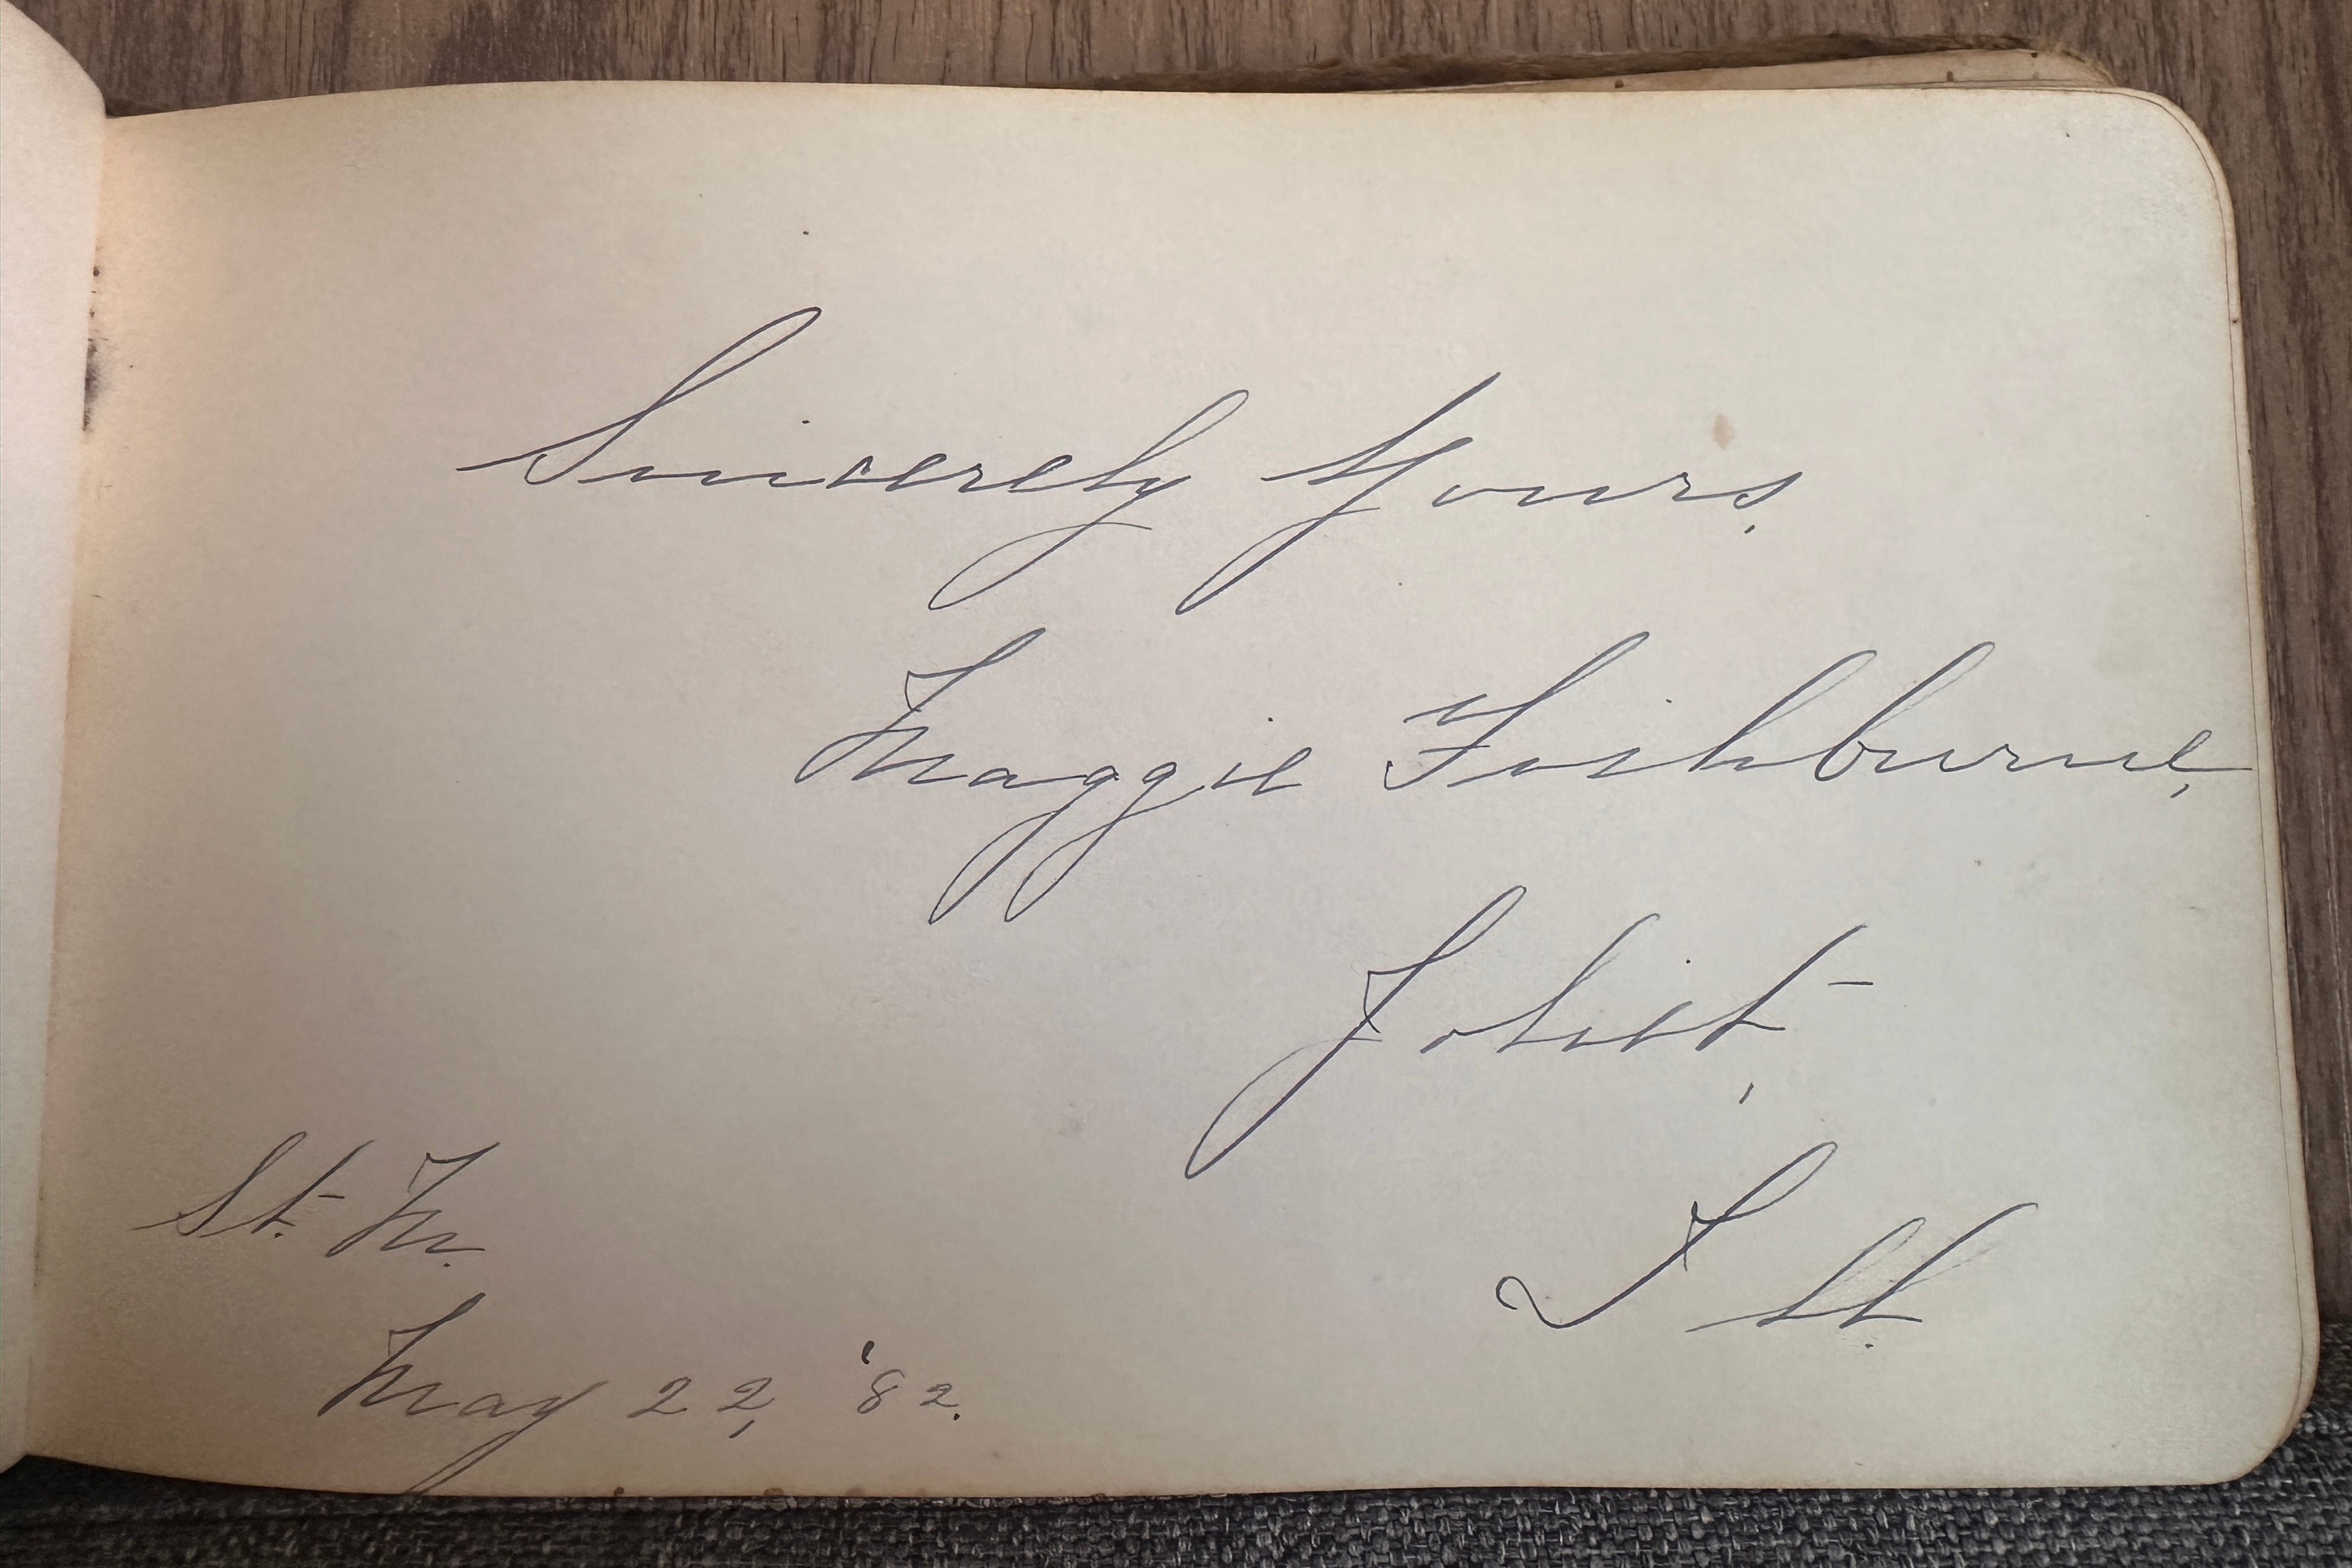 Sincerely Yours,
Maggie Fishburne,
Joliet,
Ill.
St. M.
May 22, '82.